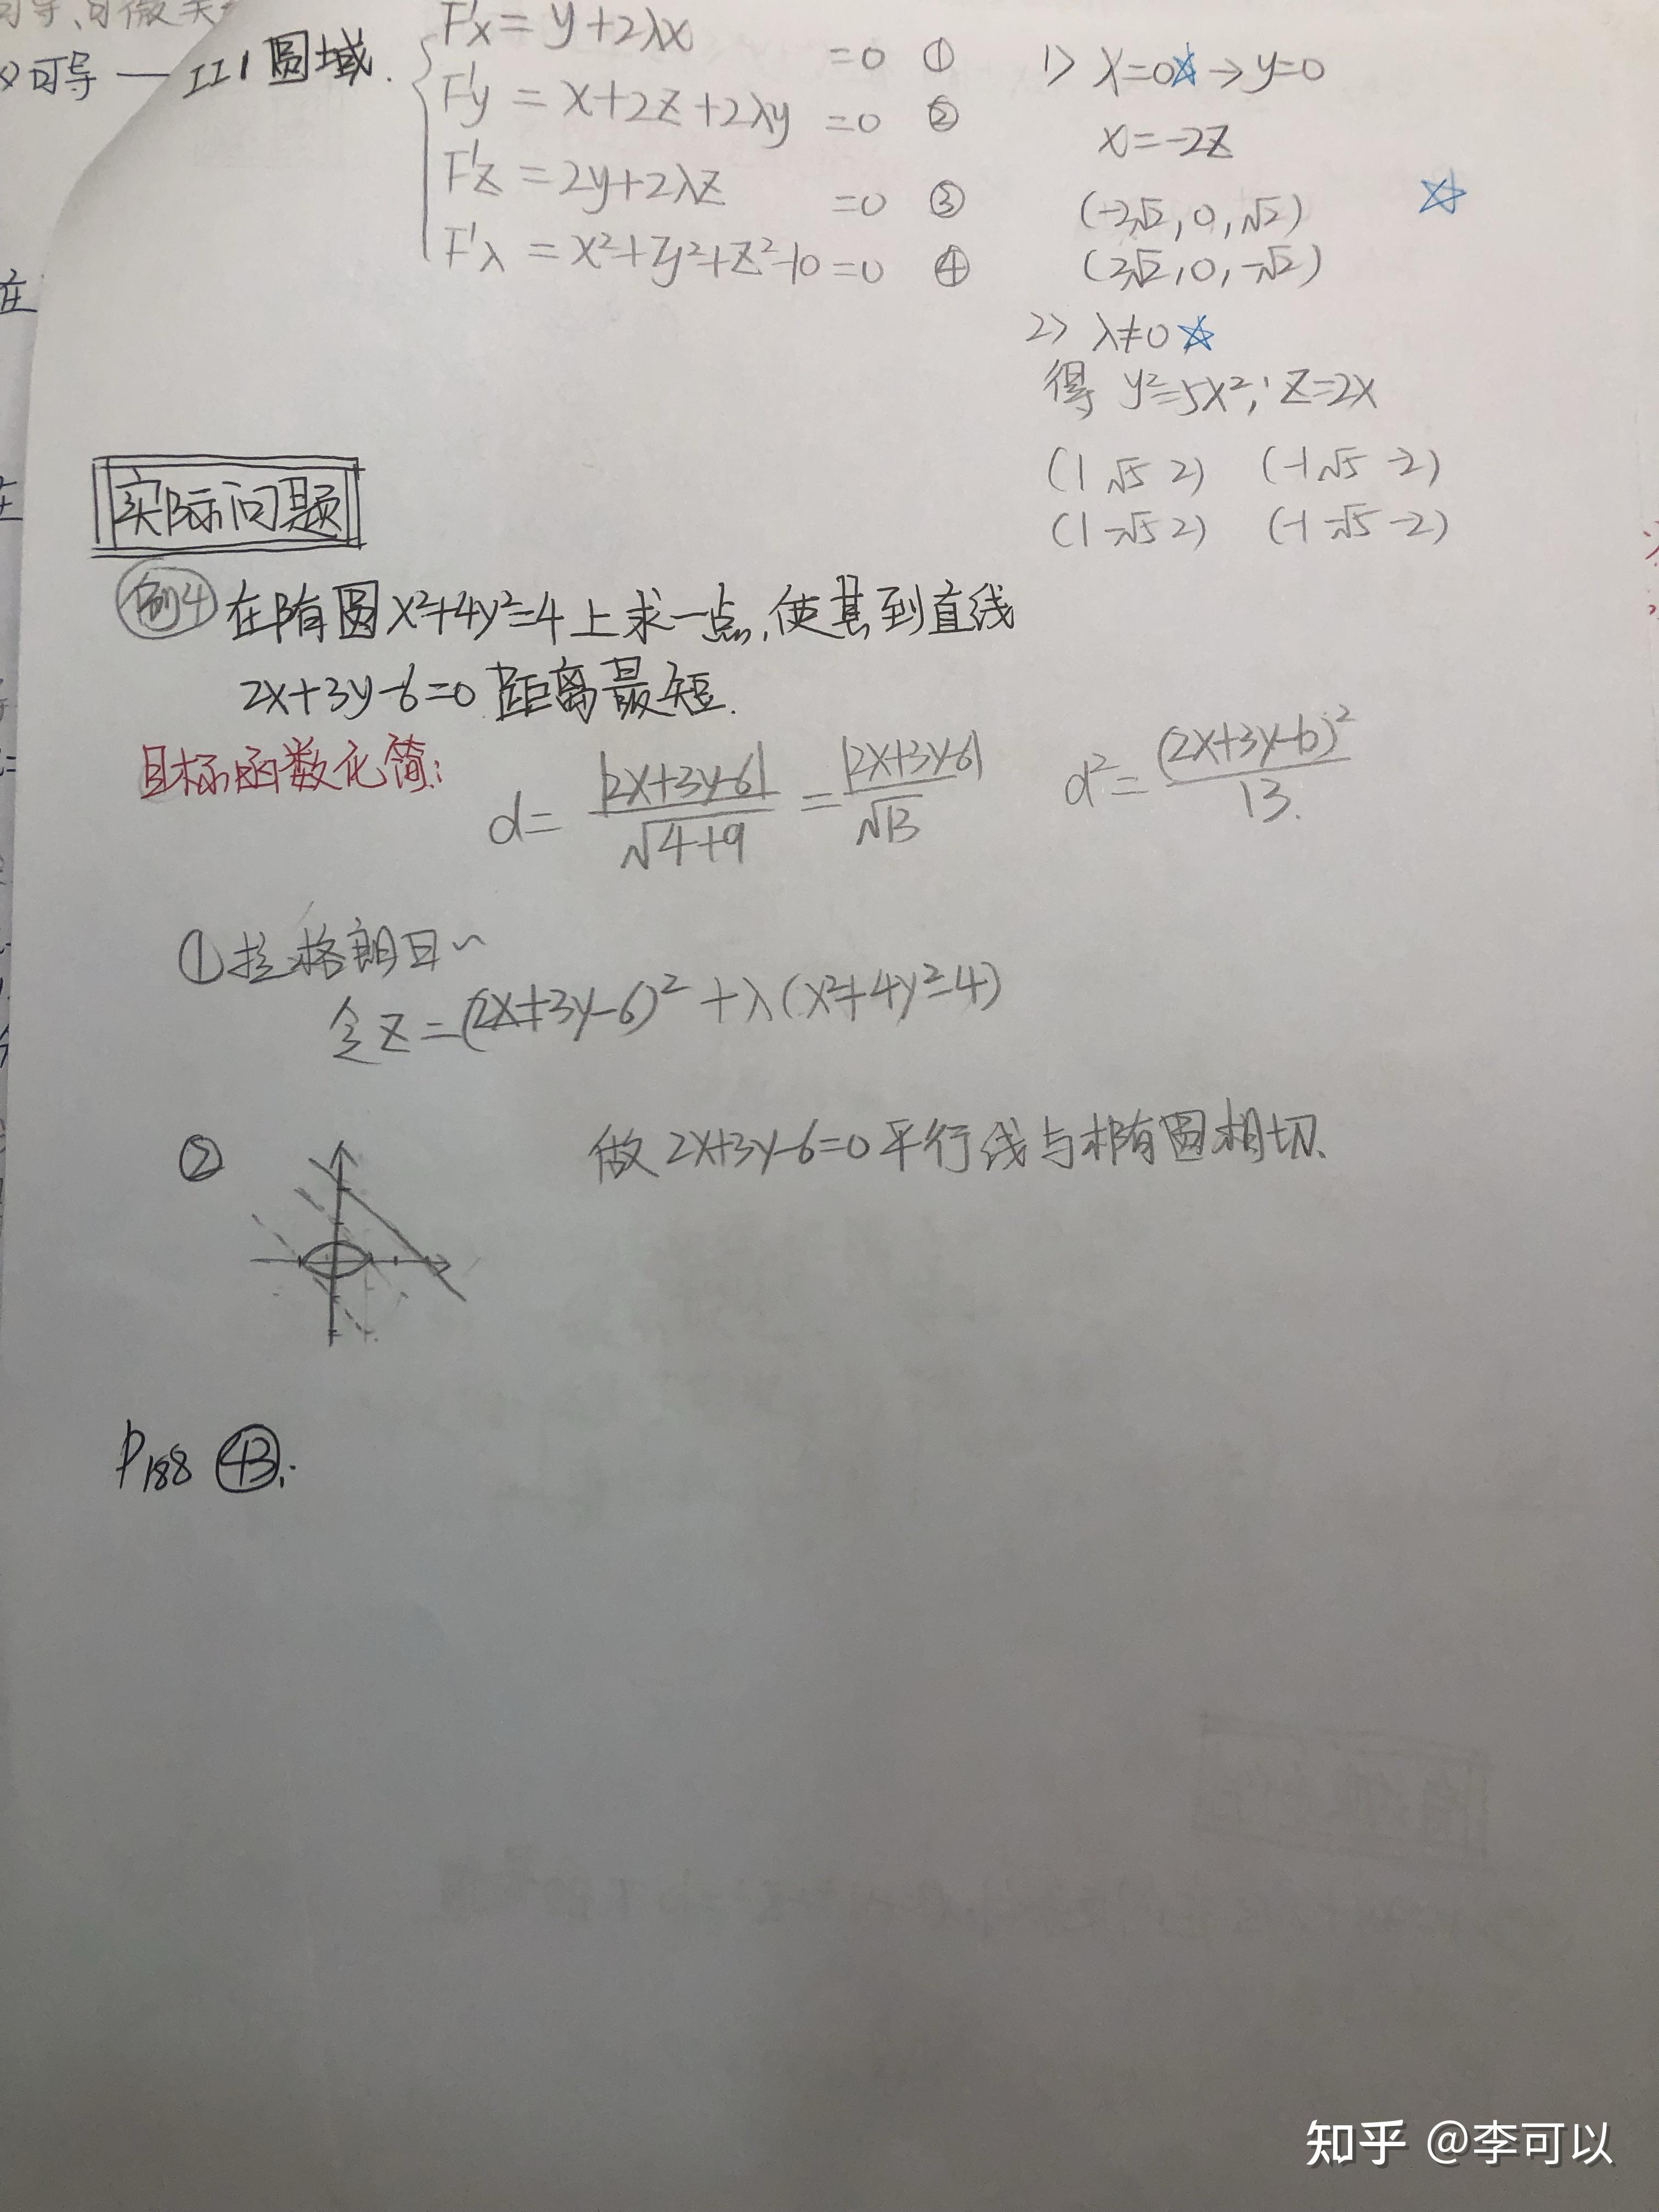 可导、可微关
可导 — III 圆域.
F'x = y+2λx =0 ①
F'y = x+2z+2λy =0 ②
F'z = 2y+2λz =0 ③
F'λ = x²+y²+z²-10=0 ④
1> λ=0☆→y=0
x=-2z
(-2√2, 0, √2) ☆
(2√2, 0, -√2)
2> λ≠0☆
得 y²=5x²; z=2x
(1 √5 2) (-1 √5 -2)
(1 -√5 2) (-1 -√5 -2)
实际问题
例4 在椭圆x²+4y²=4上求一点,使其到直线
2x+3y-6=0 距离最短.
目标函数化简:
d= |2x+3y-6|/√4+9 = |2x+3y-6|/√13 d²= (2x+3y-6)²/13.
①拉格朗日~
令z=(2x+3y-6)²+λ(x²+4y²-4)
② 做2x+3y-6=0平行线与椭圆相切.
P188 ④③.
知乎 @李可以